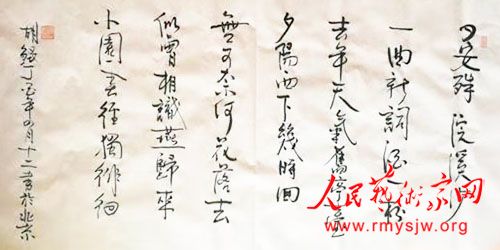 晏殊 浣溪沙
一曲新詞酒一杯
去年天氣舊亭臺
夕陽西下幾時回
無可奈何花落去
似曾相識燕歸來
小園香徑獨徘徊
胡 丁亥年四月十二書於北京
人民藝術家网
www.rmysjw.org